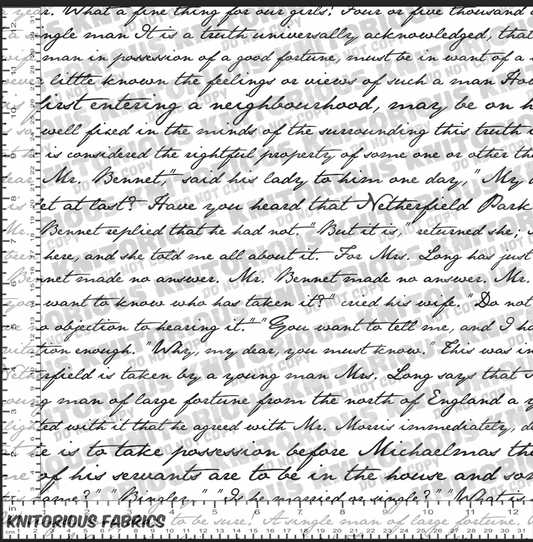 dear. What a fine thing for our girls! Four or five thousand a
single man It is a truth universally acknowledged, that
wife man in possession of a good fortune, must be in want of a
little known the feelings or views of such a man How
first entering a neighbourhood, may be on h
so well fixed in the minds of the surrounding this truth i
is considered the rightful property of some one or other the
dear Mr. Bennet," said his lady to him one day, "My
is let at last? Have you heard that Netherfield Park
Mr. Bennet replied that he had not. "But it is," returned she;
been here, and she told me all about it. For Mrs. Long has just
Bennet made no answer. Mr. Bennet made no answer. Mr.
you want to know who has taken it?" cried his wife. "Do not
no objection to hearing it." "You want to tell me, and I ha
vitation enough. "Why, my dear, you must know." This was in
Netherfield is taken by a young man Mrs. Long says that
young man of large fortune from the north of England a y
lighted with it that he agreed with Mr. Morris immediately, d
he is to take possession before Michaelmas the
of his servants are to be in the house and so
name?" "Bingley." "Is he married or single?" "What is
KNITORIOUS FABRICS
to be sure! A single man of large fortune.
KNITORIOUS FABRICS
DO NOT COPY